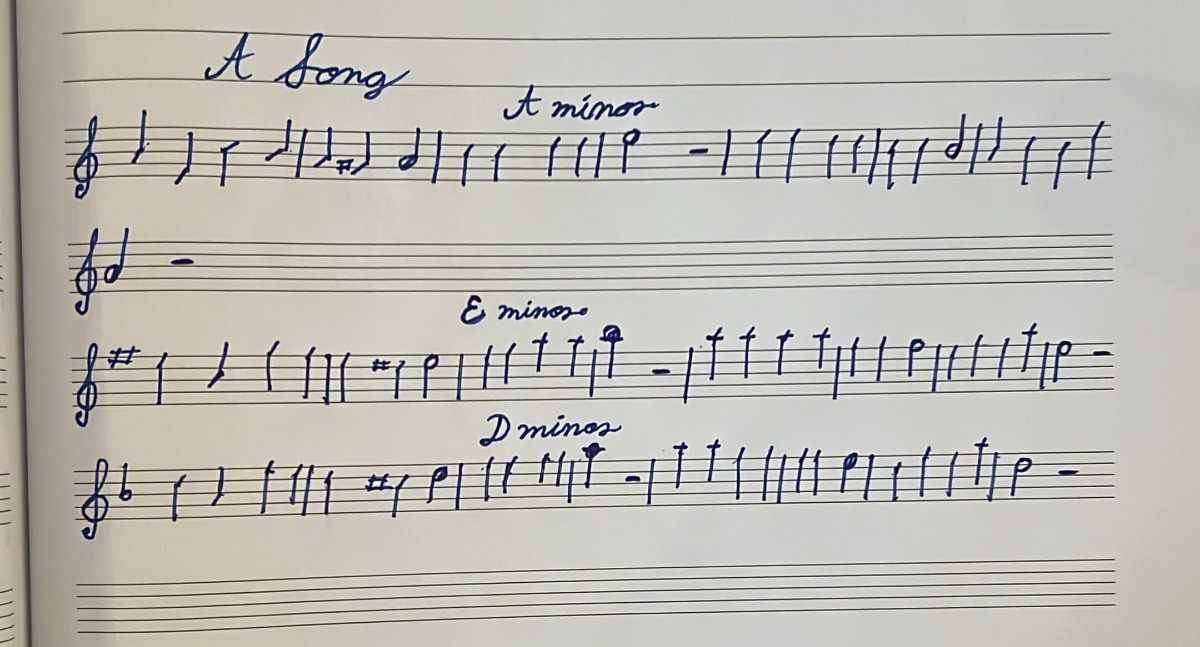 A Song
A minor
E minor
D minor